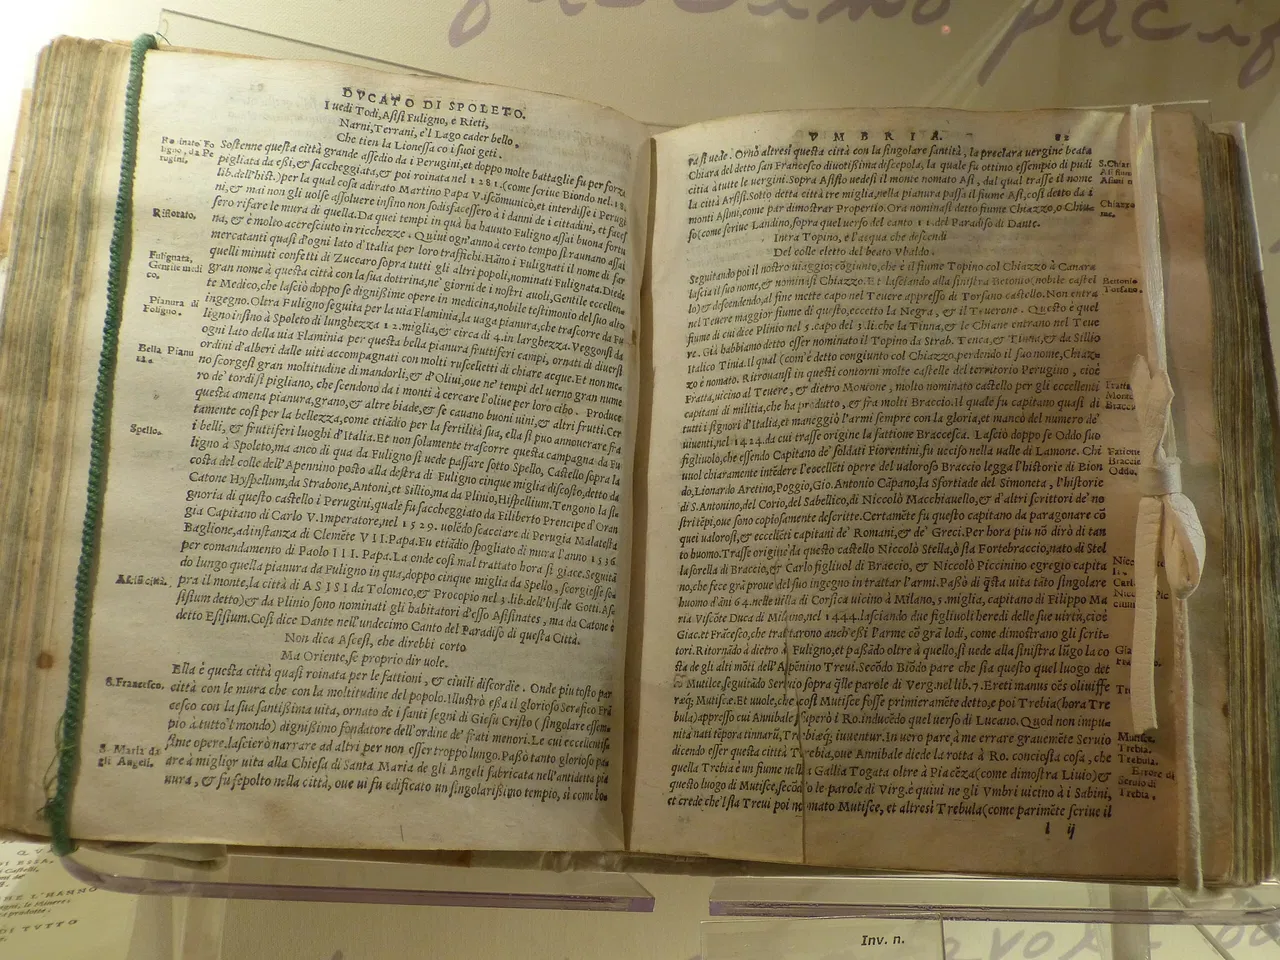 DVCATO DI SPOLETO.
I uedi Todi, Asisi Fuligno, e Rieti,
Narni, Terrani, e'l Lago cader bello.
Che tien la Lionessa co i suoi geti.
Sostenne questa città grande assedio da i Perugini, et doppo molte battaglie fu per forza
pigliata da eßi, & saccheggiata, & poi roinata nel 1281. (come scriue Biondo nel 18.
lib. dell'hist.) per la qual cosa adirato Martino Papa V. iscōmunicò, et interdisse i Perugi
ni, & mai non gli uolse assoluere insino non sodisfacessero à i danni de i cittadini, et facef
sero rifare le mura di quella. Da quei tempi in quà ha hauuto Fuligno assai buona fortu
na, & è molto accresciuto in ricchezze. Quiui ogn'anno à certo tempo si raunano assai
mercatanti quasi d'ogni lato d'Italia per loro traffichi. Hāno i Fulignati il nome di far
quelli minuti confetti di Zuccaro sopra tutti gli altri popoli, nominati Fulignata. Diede
gran nome à questa città con la sua dottrina, ne' giorni de i nostri auoli, Gentile eccellen
te Medico, che lasciò doppo se dignißime opere in medicina, nobile testimonio del suo alto
ingegno. Oltra Fuligno seguita per la uia Flaminia, la uaga pianura, che trascorre da Fu
ligno insino à Spoleto di lunghezza 12. miglia, & circa di 4. in larghezza. Veggonsi da
ogni lato della uia Flaminia per questa bella pianura fruttiferi campi, ornati di diuersi
ordini d'alberi dalle uiti accompagnati con molti ruscelletti di chiare acque. Et non me
no scorgesi gran moltitudine di mandorli, & d'Oliui, oue ne' tempi del uerno gran nume
ro de' tordi si pigliano, che scendono da i monti à cercare l'oliue per loro cibo. Produce
questa amena pianura, grano, & altre biade, & se cauano buoni uini, & altri frutti. Cer
tamente cosi per la bellezza, come etiādio per la fertilità sua, ella si puo annouerare frà
i belli, & fruttiferi luoghi d'Italia. Et non solamente trascorre questa campagna da Fu
ligno à Spoleto, ma anco di qua da Fuligno si uede passare sotto Spello, Castello sopra la
costa del colle dell'Apennino posto alla destra di Fuligno cinque miglia discosto, detto da
Catone Hyspellum, da Strabone, Antoni, et Sillio, ma da Plinio, Hispellium. Tengono la si
gnoria di questo castello i Perugini, quale fu saccheggiato da Filiberto Prencipe d'Oran
gia Capitano di Carlo V. Imperatore, nel 1529. uolēdo scacciare di Perugia Malatesta
Baglione, ad instanza di Clemēte VII. Papa. Fu etiādio spogliato di mura l'anno 1536.
per comandamento di Paolo III. Papa. La onde cosi mal trattato hora si giace. Seguitā
do lungo quella pianura da Fuligno in qua, doppo cinque miglia da Spello, scorgesse so
pra il monte, la città di ASISI da Tolomeo, & Procopio nel 3. lib. dell'his. de Gotti. Ase
sisium detto) & da Plinio sono nominati gli habitatori d'esso Asisinates, ma da Catone è
detto Esisium. Cosi dice Dante nell'undecimo Canto del Paradiso di questa Città.
Non dica Ascesi, che direbbi corto
Ma Oriente, se proprio dir uole.
Ella è questa città quasi roinata per le fattioni, & ciuili discordie. Onde piu tosto par
città con le mura che con la moltitudine del popolo. Illustrò eßa il glorioso Serafico Frā
cesco con la sua santißima uita, ornato de i santi segni di Giesu Cristo (singolare essem-
pio à tutto'l mondo) dignißimo fondatore dell'ordine de' frati menori. Le cui eccellentis
sime opere, lascierò narrare ad altri per non esser troppo lungo. Paßò tanto glorioso pa
dre à miglior uita alla Chiesa di Santa Maria de gli Angeli fabricata nell'antidetta pia
nura, & fu sepolto nella città, oue ui fu edificato un singolarißimo tempio, sì come ho-
Roinato Fo
ligno, da Pe
rugini.
Ristorato.
Fulignata,
Gentile medi
co.
Pianura di
Foligno.
Bella Pianu
ra.
Spello.
Asisi città.
S. Francesco.
S. Maria de
gli Angeli.
VMBRIA.
82
ra si uede. Ornò altresi questa città con la singolare santità, la preclara uergine beata
Chiara del detto san Francesco diuotißima discepola, la quale fu ottimo essempio di pudi
citia à tutte le uergini. Sopra Asisio uedesi il monte nomato Asi, dal qual trasse il nome
la città Asisi. Sotto detta città tre miglia, nella pianura passa il fiume Asi, cosi detto da i
monti Asini, come par dimostrar Propertio. Ora nominasi detto fiume Chiazzo, o Chiu
so (come scriue Landino, sopra quel uerso del canto 11. del Paradiso di Dante.
Intra Topino, e l'acqua che descendi
Del colle eletto del beato Vbaldo.
Seguitando poi il nostro uiaggio; cōgiunto, che è il fiume Topino col Chiazzo à Canara
lascia il suo nome, & nominasi Chiazzo. Et lasciando alla sinistra Betonio (nobile castel
lo) & descendendo, al fine mette capo nel Teuere appresso di Torsano castello. Non entra
nel Teuere maggior fiume di questo, eccetto la Negra, & il Teuerone. Questo è quel
fiume di cui dice Plinio nel 5. capo del 3. li. che la Tinna, & le Chiane entrano nel Teue
re. Già habbiamo detto esser nominato il Topino da Strab. Tenea, & Tinna, & da Sillio
Italico Tinia. Il qual (com'è detto congiunto col Chiazzo, perdendo il suo nome, Chiaz-
zo è nomato. Ritrouansi in questi contorni molte castelle del territorio Perugino, cioè
Fratta, uicino al Teuere, & dietro Montone, molto nominato castello per gli eccellenti
capitani di militia, che ha produtto, & fra molti Braccio. Il quale fu capitano quasi di
tutti i signori d'Italia, et maneggiò l'armi sempre con la gloria, et mancò del numero de'
uiuenti, nel 1424. da cui trasse origine la fattione Braccesca. Lasciò doppo se Oddo suo
figliuolo, che essendo Capitano de' soldati Fiorentini, fu ucciso nella ualle di Lamone. Chi
uuol chiaramente intēdere l'eccellēti opere del ualoroso Braccio legga l'historie di Bion
do, Lionardo Aretino, Poggio, Gio. Antonio Cāpano, la Sfortiade del Simoneta, l'historie
di S. Antonino, del Corio, del Sabellico, di Niccolò Macchiauello, & d'altri scrittori de' no
stri tēpi, oue sono copiosamente descritte. Certamēte fu questo capitano da paragonare cō
quei ualorosi, & eccellēti capitani de' Romani, & de' Greci. Per hora piu nō dirò di tan
to buomo. Trasse origine da questo castello Niccolò Stella, ò sia Fortebraccio, nato di Stel
la sorella di Braccio, & Carlo figliuol di Braccio, & Niccolò Piccinino egregio capita
no, che fece grā proue del suo ingegno in trattar l'armi. Paßò di q̄sta uita tāto singolare
huomo d'āni 64. nella uilla di Corsica uicino à Milano, 5. miglia, capitano di Filippo Ma
ria Viscōte Duca di Milano, nel 1444. lasciando due figliuoli heredi delle sue uirtù, cioè
Giac. et Frācesco, che trattarono anch'eßi l'arme cō grā lodi, come dimostrano gli scrit-
tori. Ritornādo à dietro à Fuligno, et paßādo oltre à quello, si uede alla sinistra lūgo la co
sta de gli alti mōti dell'Apēnino Treui. Secōdo Biōdo pare che sia questo quel luogo det
to Mutisce, seguitādo Seruio sopra q̄lle parole di Verg. nel lib. 7. Ereti manus oēs oliuiffe
ræq; Mutiscæ. Et uuole, che cosi Mutisce fosse primieramēte detto, e poi Trebia (hora Tre
bula) appresso cui Annibale superò i Ro. inducēdo quel uerso di Lucano. Quod non impu
nita nati tēpora tinnarū, Trebiæq; iuuentur. In uero pare à me errare grauemēte Seruio
dicendo esser questa città Trebia, oue Annibale diede la rotta à Ro. conciosia cosa, che
quella Trebia è un fiume nella Gallia Togata oltre à Piacēza (come dimostra Liuio) &
questo luogo di Mutisce, secōdo le parole di Virg. è quiui ne gli Vmbri uicino à i Sabini,
et crede che'l sia Treui poi nomato Mutisce, et altresi Trebula (come parimēte scriue il
l ij
S. Chiar
Asi fiume
Asini n
Chiazzo
Betonio
Torsano.
Fratta
Monto
Braccio
Fatione
Braccio
Oddo.
Nicco
Carl
Nic Pic
cinin
Tr
Mutisce.
Trebia.
Trebula.
Errore di
Seruio di
Trebia.
Inv. n.